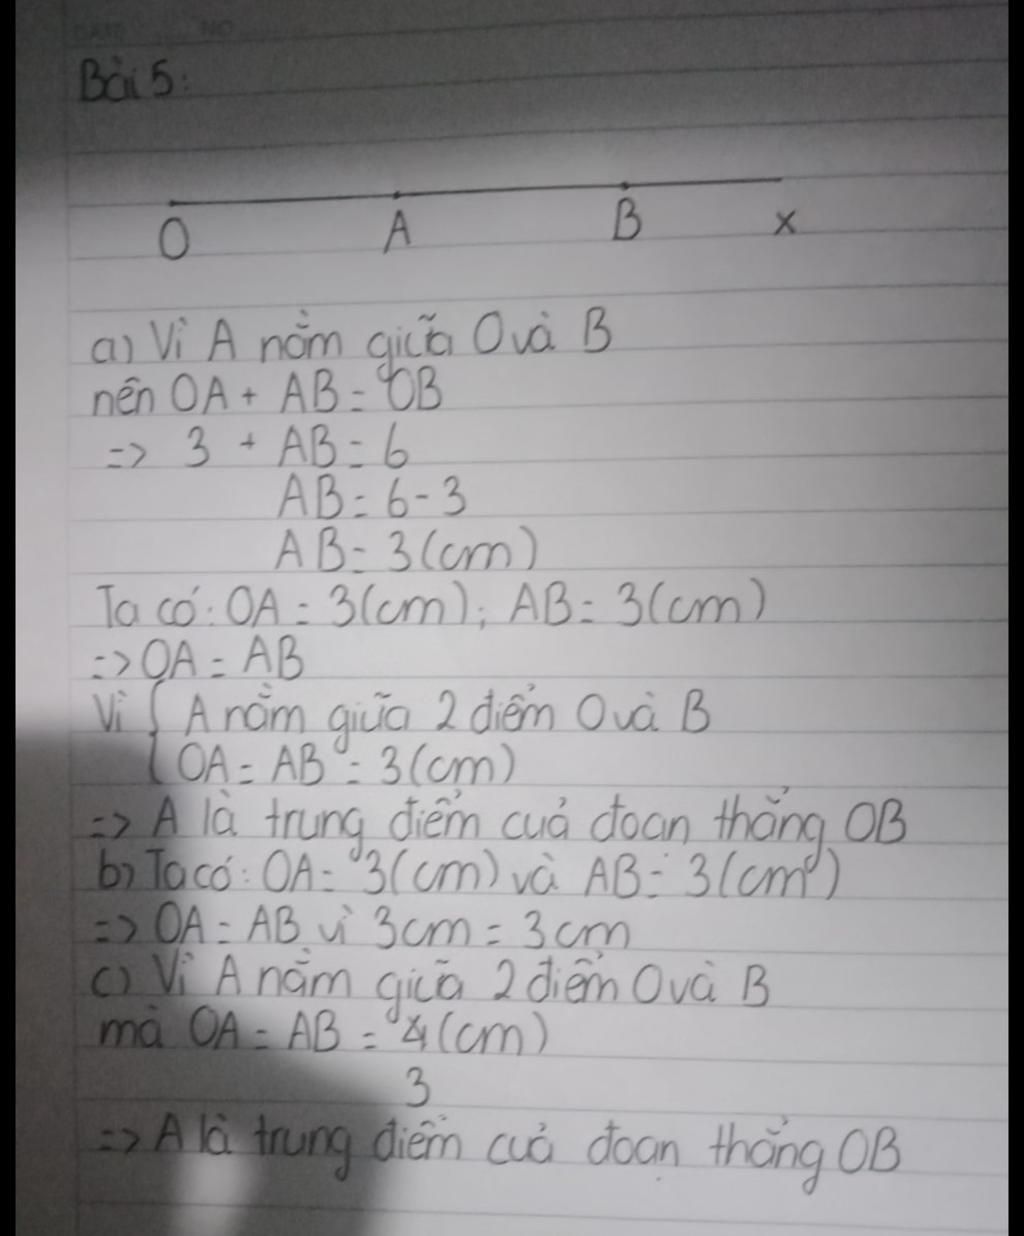 Bài 5:
O A B x
a) Vì A nằm giữa O và B
nên OA + AB = OB
=> 3 + AB = 6
AB = 6 - 3
AB = 3 (cm)
Ta có: OA = 3 (cm); AB = 3 (cm)
=> OA = AB
Vì { A nằm giữa 2 điểm O và B
OA = AB = 3 (cm)
=> A là trung điểm cuả đoan thẳng OB
b) Ta có: OA = 3 (cm) và AB = 3 (cm)
=> OA = AB vì 3cm = 3cm
c) Vì A nằm giữa 2 điểm O và B
mà OA = AB = 4 (cm)
3
=> A là trung điểm cuả đoạn thẳng OB